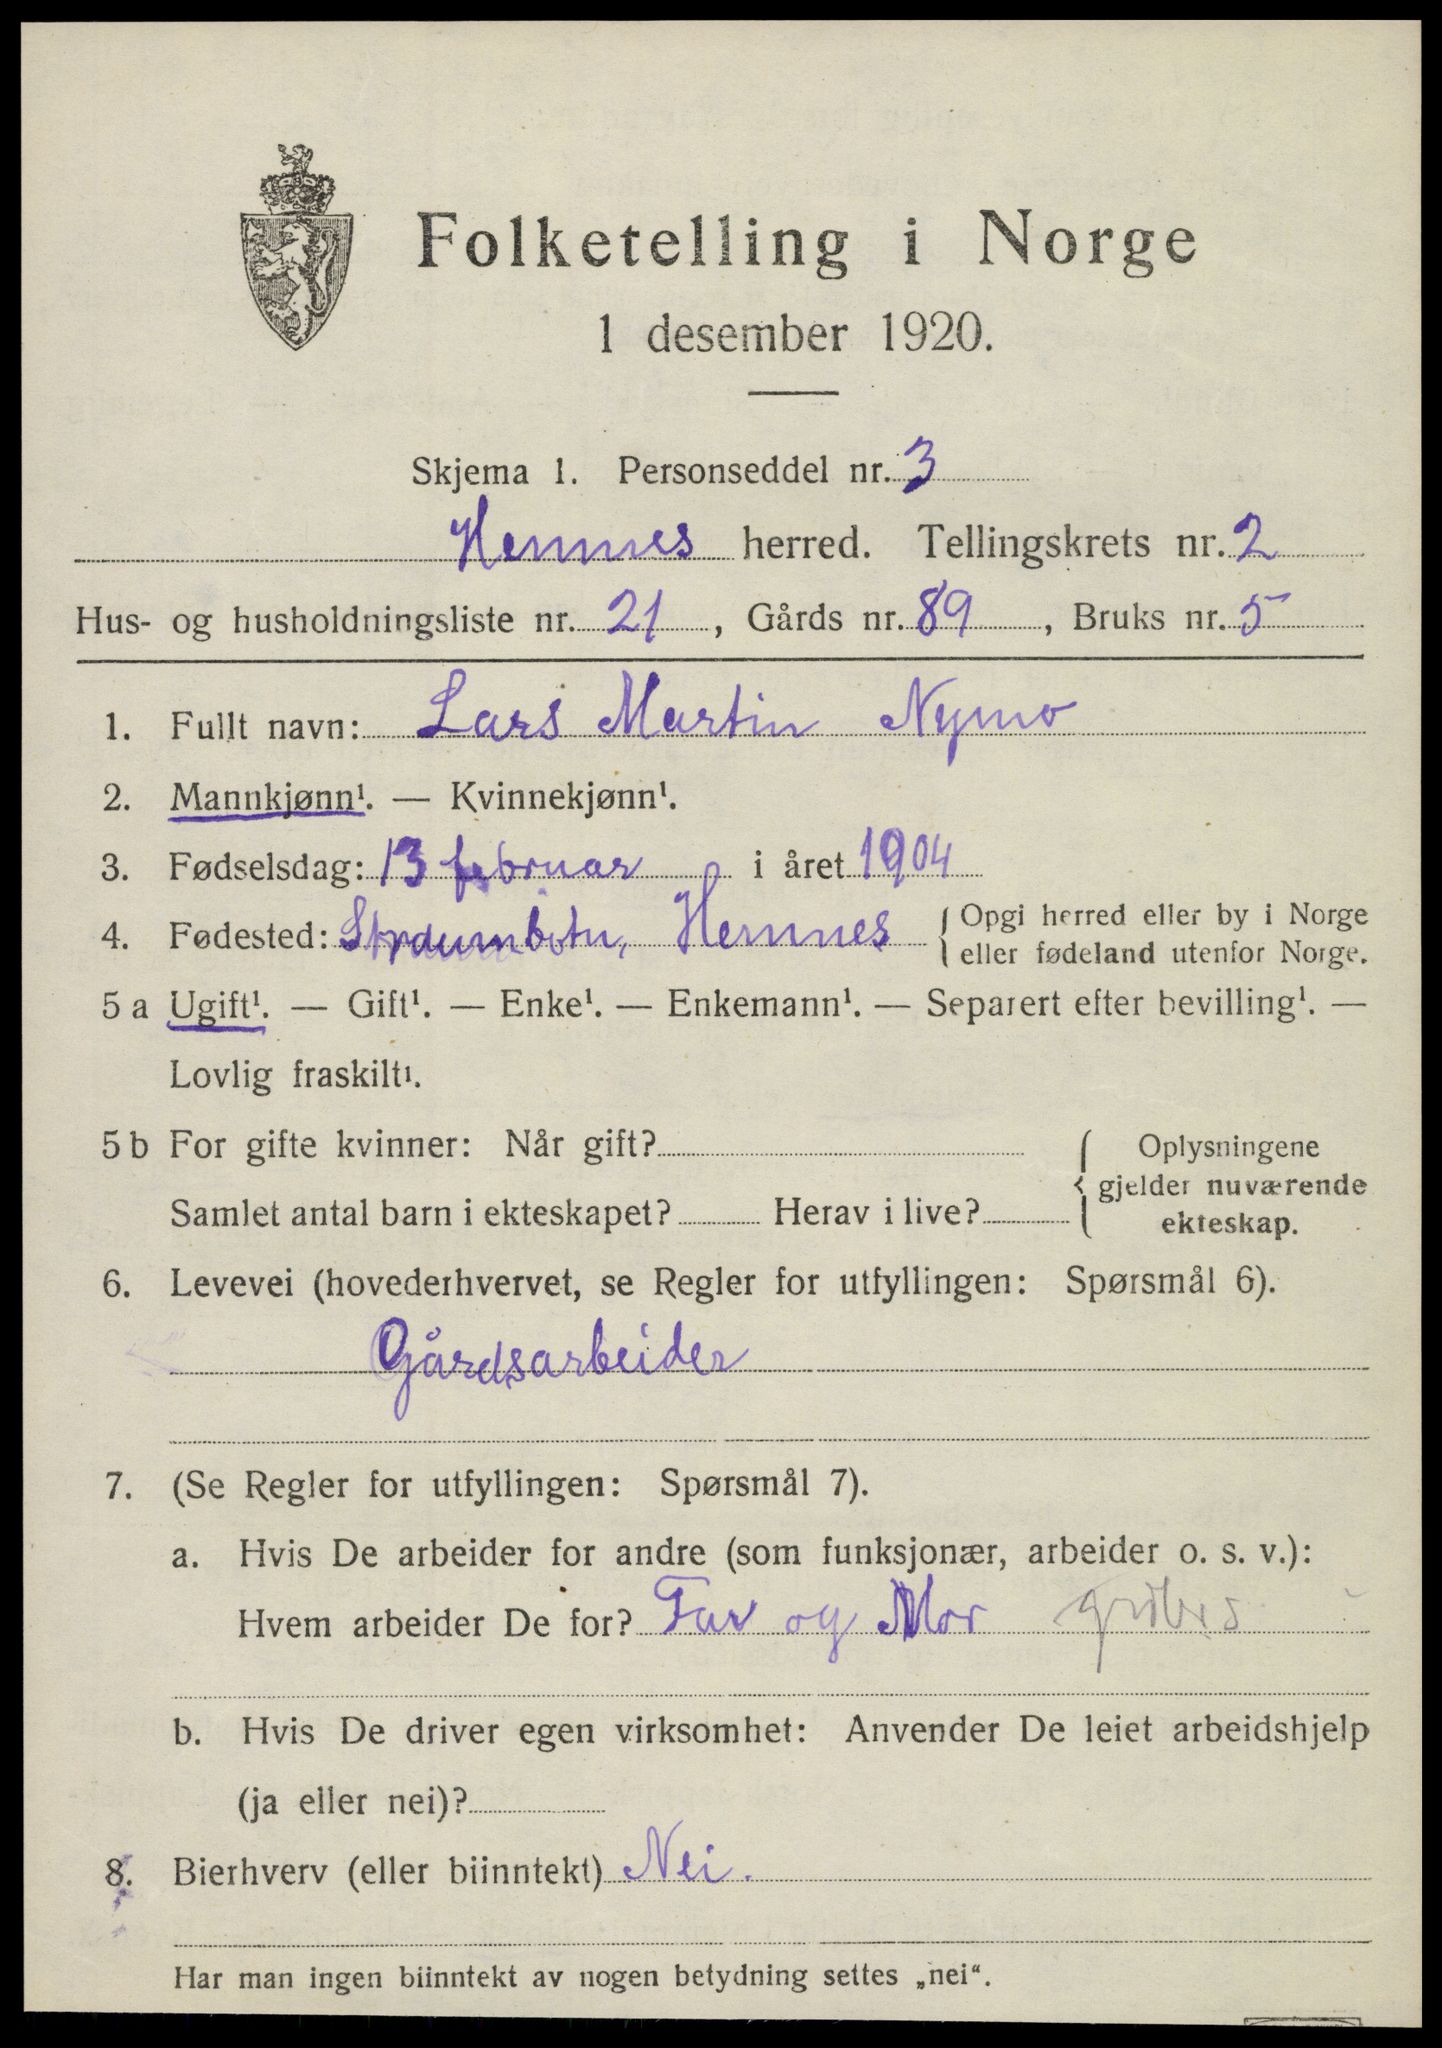 Folketelling i Norge
1 desember 1920.
Skjema 1. Personseddel nr. 3
Hemnes herred. Tellingskrets nr. 2
Hus- og husholdningsliste nr. 21, Gårds nr. 89, Bruks nr. 5
1. Fullt navn: Lars Martin Nymo
2. Mannkjønn¹. — Kvinnekjønn¹.
3. Fødselsdag: 13 februar i året 1904
4. Fødested: Straumbotn, Hemnes { Opgi herred eller by i Norge
eller fødeland utenfor Norge.
5 a Ugift¹. — Gift¹. — Enke¹. — Enkemann¹. — Separert efter bevilling¹. —
Lovlig fraskilt¹.
5 b For gifte kvinner: Når gift? { Oplysningene
gjelder nuværende
Samlet antal barn i ekteskapet? Herav i live? ekteskap.
6. Levevei (hovederhvervet, se Regler for utfyllingen: Spørsmål 6).
Gårdsarbeider
7. (Se Regler for utfyllingen: Spørsmål 7).
a. Hvis De arbeider for andre (som funksjonær, arbeider o. s. v.):
Hvem arbeider De for? Far og Mor
b. Hvis De driver egen virksomhet: Anvender De leiet arbeidshjelp
(ja eller nei)?
8. Bierhverv (eller biinntekt) Nei.
Har man ingen biinntekt av nogen betydning settes „nei“.